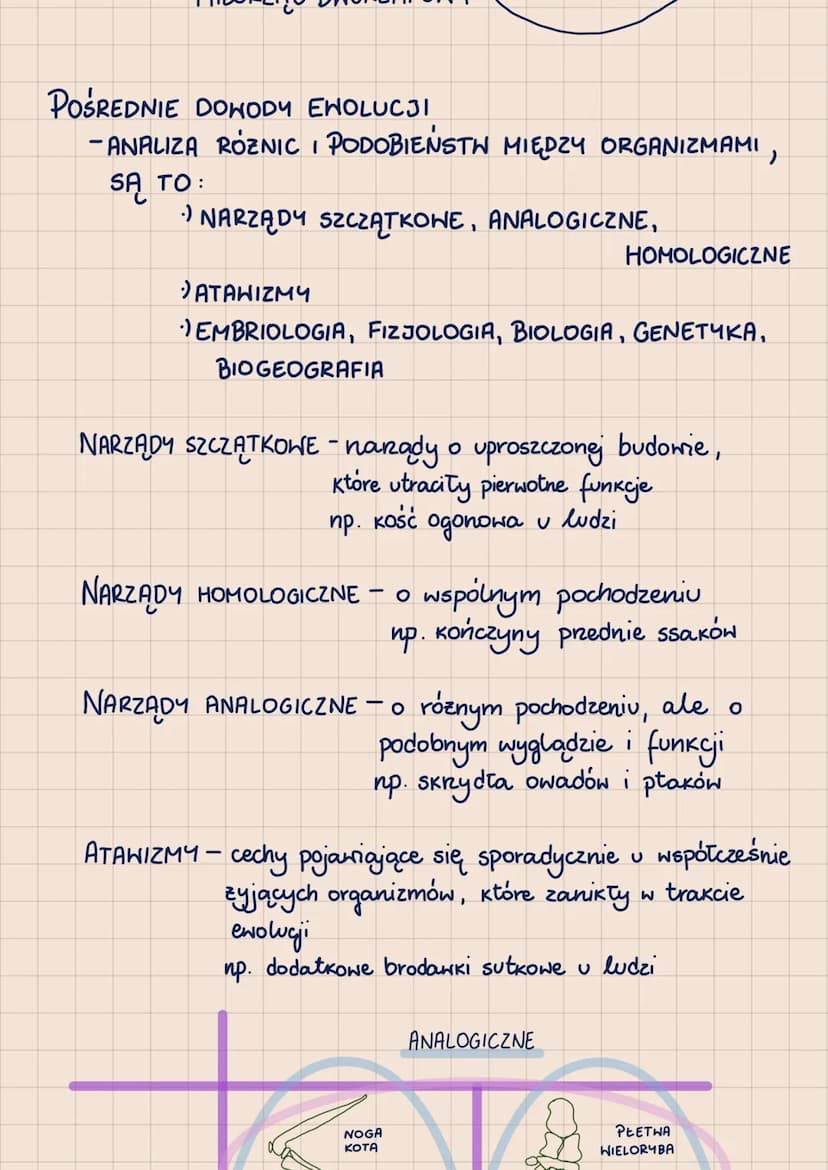 POŚREDNIE DOWODY EWOLUCJI
- ANALIZA RÓŻNIC I PODOBIEŃSTW MIĘDZY ORGANIZMAMI,
SĄ TO:
·) NARZĄDY SZCZĄTKOWE, ANALOGICZNE,
HOMOLOGICZNE
·) ATAWIZMY
·) EMBRIOLOGIA, FIZJOLOGIA, BIOLOGIA, GENETYKA,
BIOGEOGRAFIA
NARZĄDY SZCZĄTKOWE - narządy o uproszczonej budowie,
które utraciły pierwotne funkcje
np. kość ogonowa u ludzi
NARZĄDY HOMOLOGICZNE - o wspólnym pochodzeniu
np. kończyny przednie ssaków
NARZĄDY ANALOGICZNE - o różnym pochodzeniu, ale o
podobnym wyglądzie i funkcji
np. skrzydła owadów i ptaków
ATAWIZMY - cechy pojawiające się sporadycznie u współcześnie
żyjących organizmów, które zanikły w trakcie
ewolucji
np. dodatkowe brodawki sutkowe u ludzi
ANALOGICZNE
NOGA
KOTA
PŁETWA
WIELORYBA